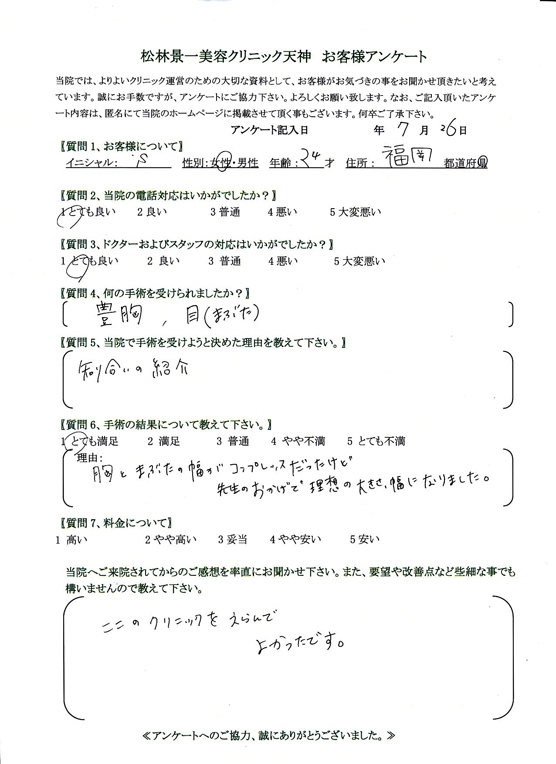 松林景一美容クリニック天神 お客様アンケート
当院では、よりよいクリニック運営のための大切な資料として、お客様がお気づきの事をお聞かせ頂きたいと考え
ています。誠にお手数ですが、アンケートにご協力下さい。よろしくお願い致します。なお、ご記入頂いたアンケ
ート内容は、匿名にて当院のホームページに掲載させて頂く事もございます。何卒ご了承下さい。
アンケート記入日 年 7 月 26日
〖質問1、お客様について〗
イニシャル: S 性別:女性・男性 年齢:24才 住所: 福岡 都道府県
〖質問2、当院の電話対応はいかがでしたか?〗
1とても良い 2良い 3普通 4悪い 5大変悪い
〖質問3、ドクターおよびスタッフの対応はいかがでしたか?〗
1 とても良い 2 良い 3 普通 4悪い 5大変悪い
〖質問4、何の手術を受けられましたか?〗
豊胸 , 目(まぶた)
〖質問5、当院で手術を受けようと決めた理由を教えて下さい。〗
知り合いの紹介
〖質問6、手術の結果について教えて下さい。〗
1 とても満足 2 満足 3 普通 4 やや不満 5 とても不満
理由:
胸とまぶたの幅がコンプレックスだったけど
先生のおかげで理想の大きさ、幅になりました。
〖質問7、料金について〗
1 高い 2やや高い 3妥当 4やや安い 5安い
当院へご来院されてからのご感想を率直にお聞かせ下さい。また、要望や改善点など些細な事でも
構いませんので教えて下さい。
ここのクリニックをえらんで
よかったです。
≪アンケートへのご協力、誠にありがとうございました。≫